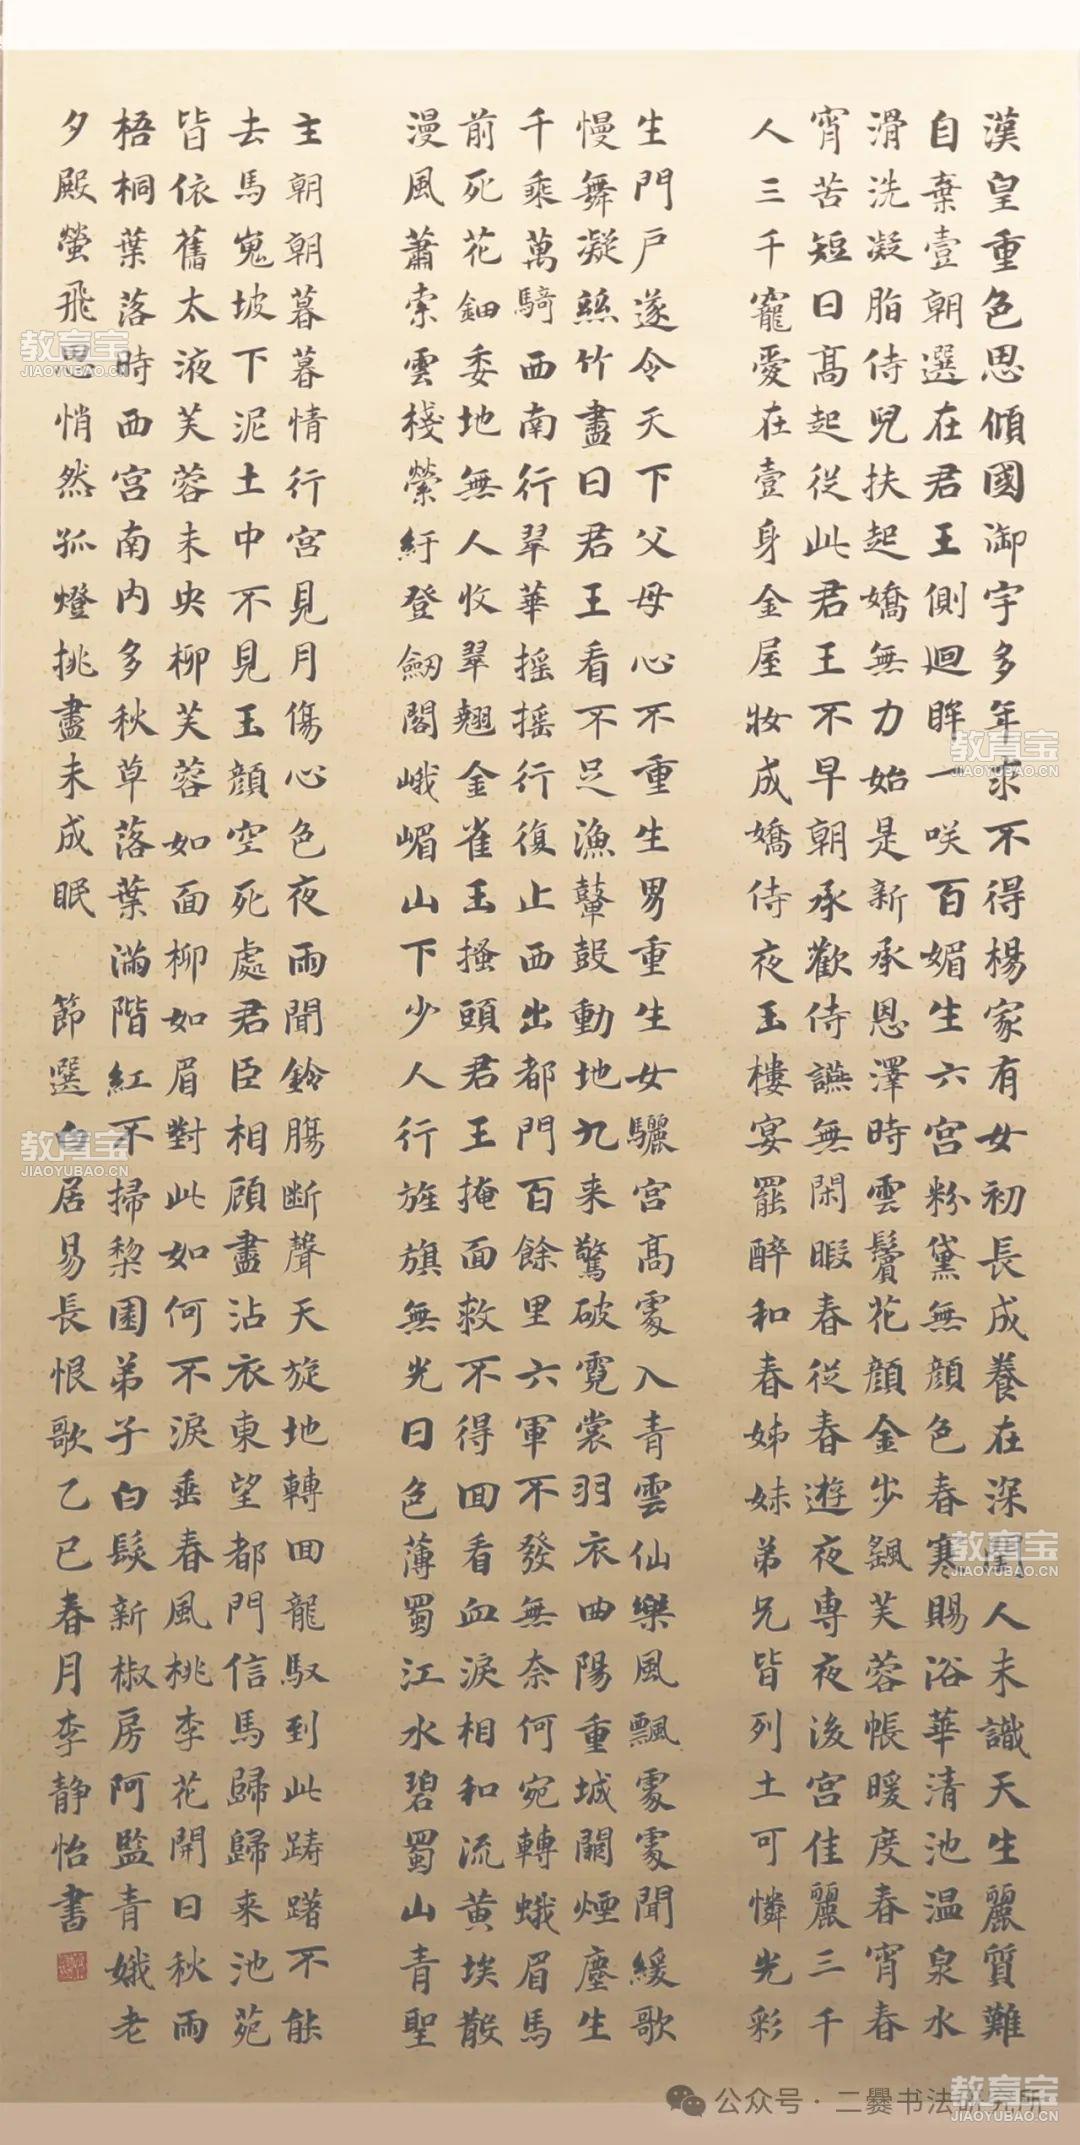 漢皇重色思傾國御宇多年求不得楊家有女初長成養在深閨人未識天生麗質難
自棄壹朝選在君王側迴眸一咲百媚生六宮粉黛無顏色春寒賜浴華清池温泉水
滑洗凝脂侍兒扶起嬌無力始是新承恩澤時雲鬢花顏金步飖芙蓉帳暖度春宵春
宵苦短日髙起從此君王不早朝承歡侍讌無閑暇春從春遊夜専夜後宮佳麗三千
人三千寵愛在壹身金屋妝成嬌侍夜玉樓宴罷醉和春姊妹弟兄皆列土可憐光彩
生門戶遂令天下父母心不重生男重生女驪宮髙處入青雲仙樂風飄處處聞緩歌
慢舞凝絲竹盡日君王看不足漁鼙鼓動地九来驚破霓裳羽衣曲陽重城闕煙塵生
千乘萬騎西南行翠華摇摇行復止西出都門百餘里六軍不發無奈何宛轉蛾眉馬
前死花鈿委地無人收翠翹金雀玉搔頭君王掩面救不得回看血淚相和流黄埃散
漫風蕭索雲棧縈紆登劒閣峨嵋山下少人行旌旗無光日色薄蜀江水碧蜀山青聖
主朝朝暮暮情行宮見月傷心色夜雨聞鈴腸断聲天旋地轉回龍馭到此躊躇不能
去馬嵬坡下泥土中不見玉顏空死處君臣相顧盡沾衣東望都門信馬歸歸来池苑
皆依舊太液芙蓉未央柳芙蓉如面柳如眉對此如何不淚垂春風桃李花開日秋雨
梧桐葉落時西宮南内多秋草落葉滿階紅不掃棃園弟子白髮新椒房阿監青娥老
夕殿螢飛思悄然孤燈挑盡未成眠 節選白居易長恨歌乙巳春月李静怡書
教育宝
JIAOYUBAO.CN
教育宝
JIAOYUBAO.CN
教育宝
JIAOYUBAO.CN
教育宝
JIAOYUBAO.CN
公众号·二爨书法研究所
教育宝
JIAOYUBAO.CN